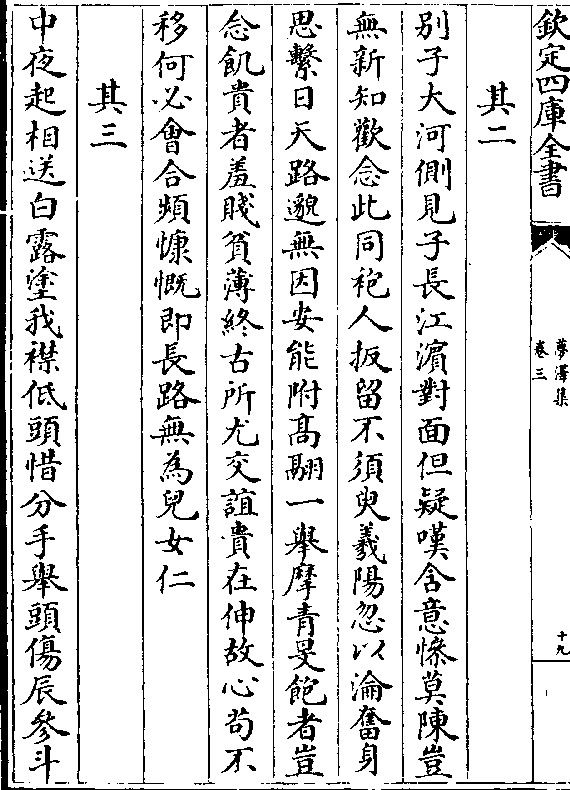 欽定四庫全書
夢澤集
卷三
十九
其二
別子大河側見子長江濵對面但疑嘆含意慘莫陳豈
無新知歡念此同袍人扳留不須臾羲陽忽以淪奮身
思繫日天路邈無因安能附髙翮一舉摩青旻飽者豈
念飢貴者羞賤貧薄終古所尤交誼貴在伸故心茍不
移何必會合頻慷慨即長路無為兒女仁
其三
中夜起相送白露塗我襟低頭惜分手舉頭傷辰參斗